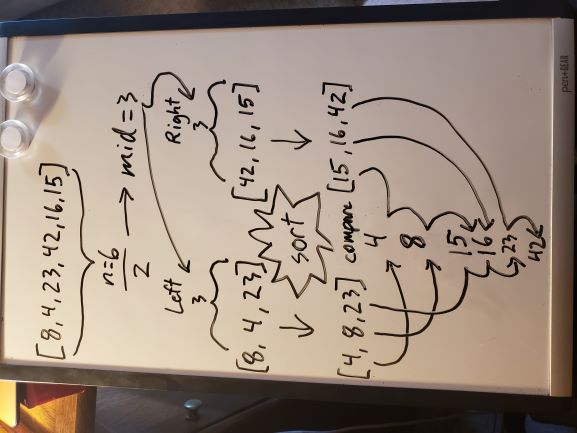 [8,4,23,42,16,15]
n=6
2
mid = 3
Left
3
Right
3
[8, 4, 23]
[42, 16, 15]
sort
[4, 8, 23]
compare
[15, 16, 42]
4
8
15
16
23
42
pen+GEAR